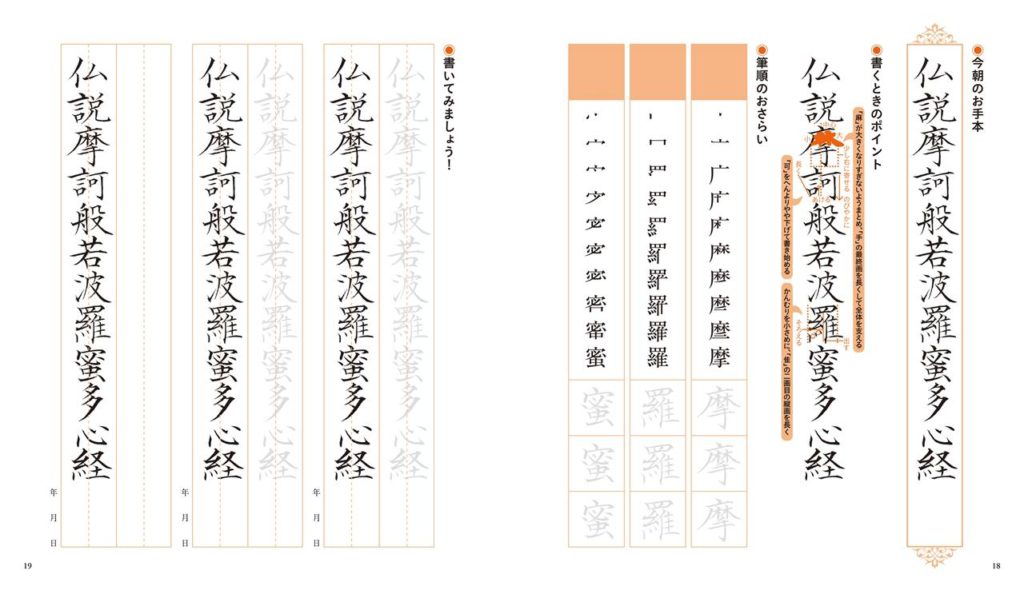 今朝のお手本
仏説摩訶般若波羅蜜多心経
書くときのポイント
「麻」が大きくなりすぎないようまとめ、「手」の最終画を長くして全体を支える
少し右に寄せる のびやかに
大
中心
小
仏説摩訶般若波羅蜜多心経
長く
あける
出す
そろえる
「可」をへんよりやや下げて書き始める
かんむりを小さめに、「隹」の二画目の縦画を長く
筆順のおさらい
摩
摩
摩
摩
羅
羅
羅
羅
蜜
蜜
蜜
蜜
18
書いてみましょう!
仏説摩訶般若波羅蜜多心経
仏説摩訶般若波羅蜜多心経
年 月 日
仏説摩訶般若波羅蜜多心経
仏説摩訶般若波羅蜜多心経
年 月 日
仏説摩訶般若波羅蜜多心経
年 月 日
19